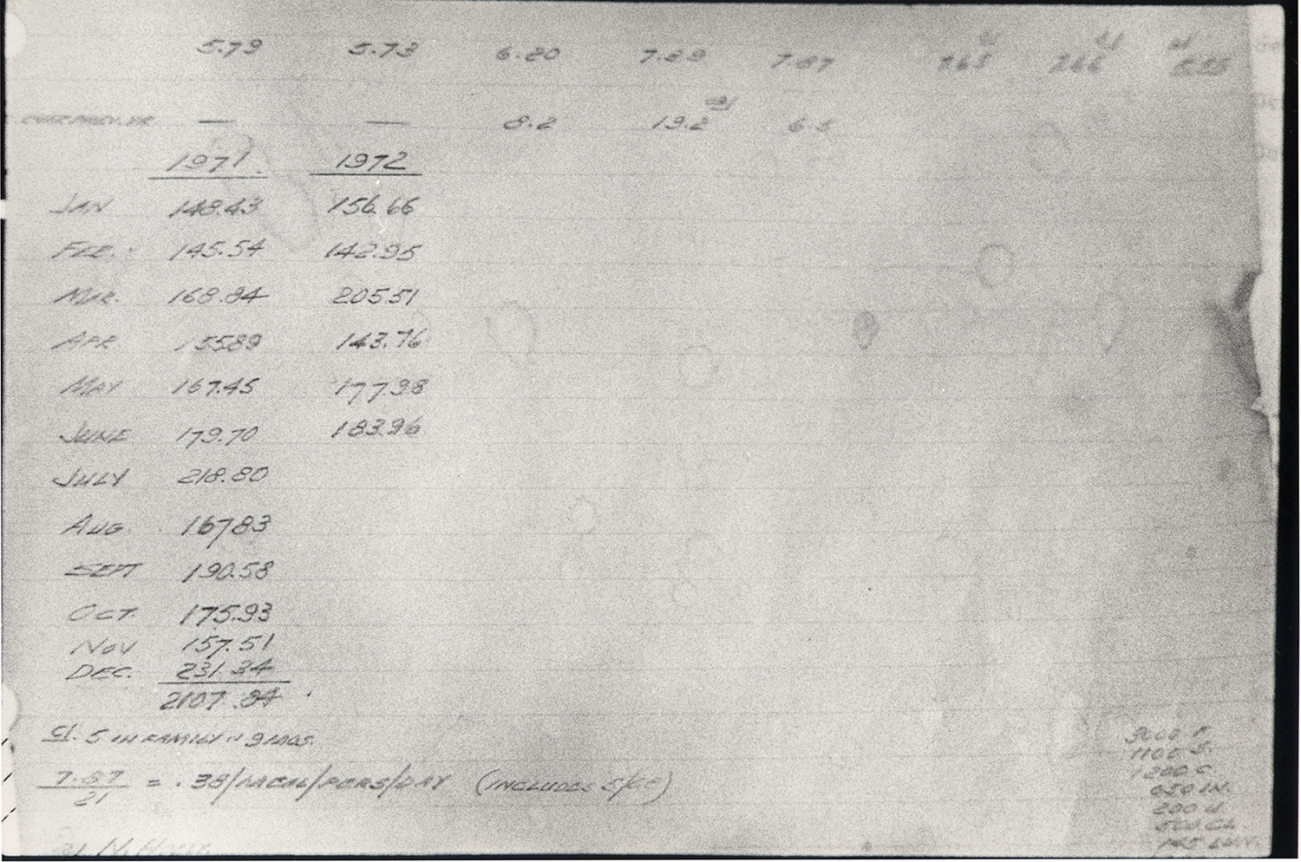 5.79 5.73 6.20 7.29 7.87 7.65 7.66
— — 8.2 13.2 6.5
1971. 1972
JAN 148.43 156.66
FEB. 145.54 142.95
MAR. 168.84 205.51
APR 155.89 143.76
MAY 167.45 177.98
JUNE 179.70 183.96
JULY 218.80
AUG. 167.83
SEPT 190.58
OCT. 175.93
NOV 157.51
DEC. 231.34
2107.84
5 IN FAMILY 9 MOS.
7.87
21 = .38/MEAL/PERS/DAY (INCLUDES
1100 S.
1200 C.
650 IN.
200 U.
500 CL.